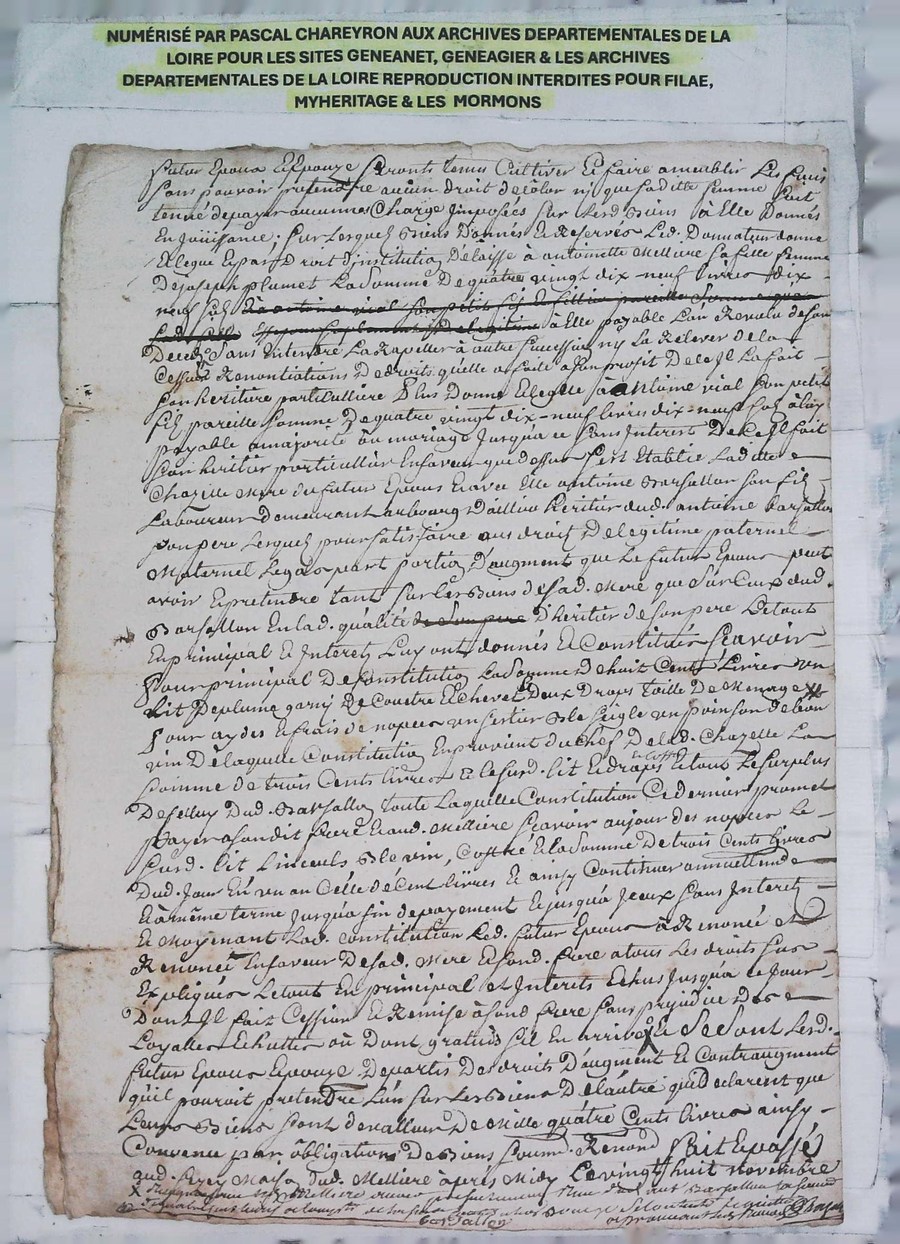 NUMÉRISÉ PAR PASCAL CHAREYRON AUX ARCHIVES DEPARTEMENTALES DE LA
LOIRE POUR LES SITES GENEANET, GENEAGIER & LES ARCHIVES
DEPARTEMENTALES DE LA LOIRE REPRODUCTION INTERDITES POUR FILAE,
MYHERITAGE & LES MORMONS
futur Epoux Et Epouze seronts tenus Cultiver Et faire ameublir Les fruis
sans pouvoir pretendre aucun droit de colon ny que sad itte femme soit
tenue de payer aucunnes Charge Jmposées sur lesd Biens à Elle Donnés
En Jouissance; sur Lesquels Biens Donnés Et Reservés Led. Donnateur donne
Et legue Et par Droit d'institution Délaisse à antoinette Melliere sa fille femme
De joseph plumet La somme De quatre vingt dix-neuf livres dix-
neuf sols
à Elle payable L'an Revolu de son
Decez sans interets La Rapeller à autre succession ny La Relever de la
Cession Renontiations De droits quelle a faite a son profit De ce Jl La fait
son heritiere particulliere Plus Donne Et legue à antoine vial son petit
fils pareille somme De quatre vingt dix-neuf livres dix-neuf sols à luy
payable a majorité ou mariage Jusqua ce sans Interest De ce Jl fait
son heritier particullier En faveur que dessus s'est Etablie Lad itte
Chazelle Mere du futur Epoux Et avec Elle antoine Barsallon son fils
Laboureur Demeurant au bourg D'ailleux heritier dud. antoine barsallon
son pere Lesquels pour satisfaire aux droits De legitime paternel
Maternel Legats part portion D'augment que Le futur Epoux peut
avoir Et pretendre tant sur Les Biens de sad. Mere que sur Ceux dud.
Barsallon En lad. qualité de son pere D'heritier de son pere De tout
En principal Et Interets Luy ont donnés Et Constitués sçavoir
Pour principal De Constitution La somme De huit Cents Livres un
Lit De plume garny De Couetre Et chevet Deux Draps toille De Menage X
Pour aydes Et frais de nopces un setier Ble seigle un poinson de bon
vin De laquelle Constitution En provient du chef De lad. Chazelle La
somme de trois Cents livres Et le surd. lit Et draps Et tout Le surplus
De Celluy Dud. Barsallon toute Laquelle Constitution Ce dernier promet
Payer a son dit frere Et aud. Melliere sçavoir au jour des nopces Le
surd. lit Linceuls Ble vin, Coffre Et la somme De trois Cents livres
Dud. Jour En un an Celle de Cent livres Et ainsy Continuer annuellement
Et à même terme Jusqu'a fin de payement Et jusqu'a Jceux sans Interets
Et Moyenant Lad. Constitution Led. futur Epoux a Renoncé Et
Renonce En faveur De sad. Mere Et sond. frere a tous Les droits sus
Expliqués Le tout En principal et Interets Echus Jusqua ce Jour
Dont Jl fait Cession Et Remise à sond frere sans prejudice Des
Loyalles Echuttes où Dont gratuits s'il En arrive X Et Se sont Lesd.
futur Epoux Epouze Departis Des droits D'augment Et Contraugment
qu'il pouroit pretendre L'un sur Les Biens De l'autre qui Declarent que
Leurs Biens sont de valleur De Mille quatre Cents livres ainsy
Convenu par obligations De Biens soumd. Renond fait Et passé
aud. Maison dud. Melliere après Midy Le vingt huit novembre
barsallon